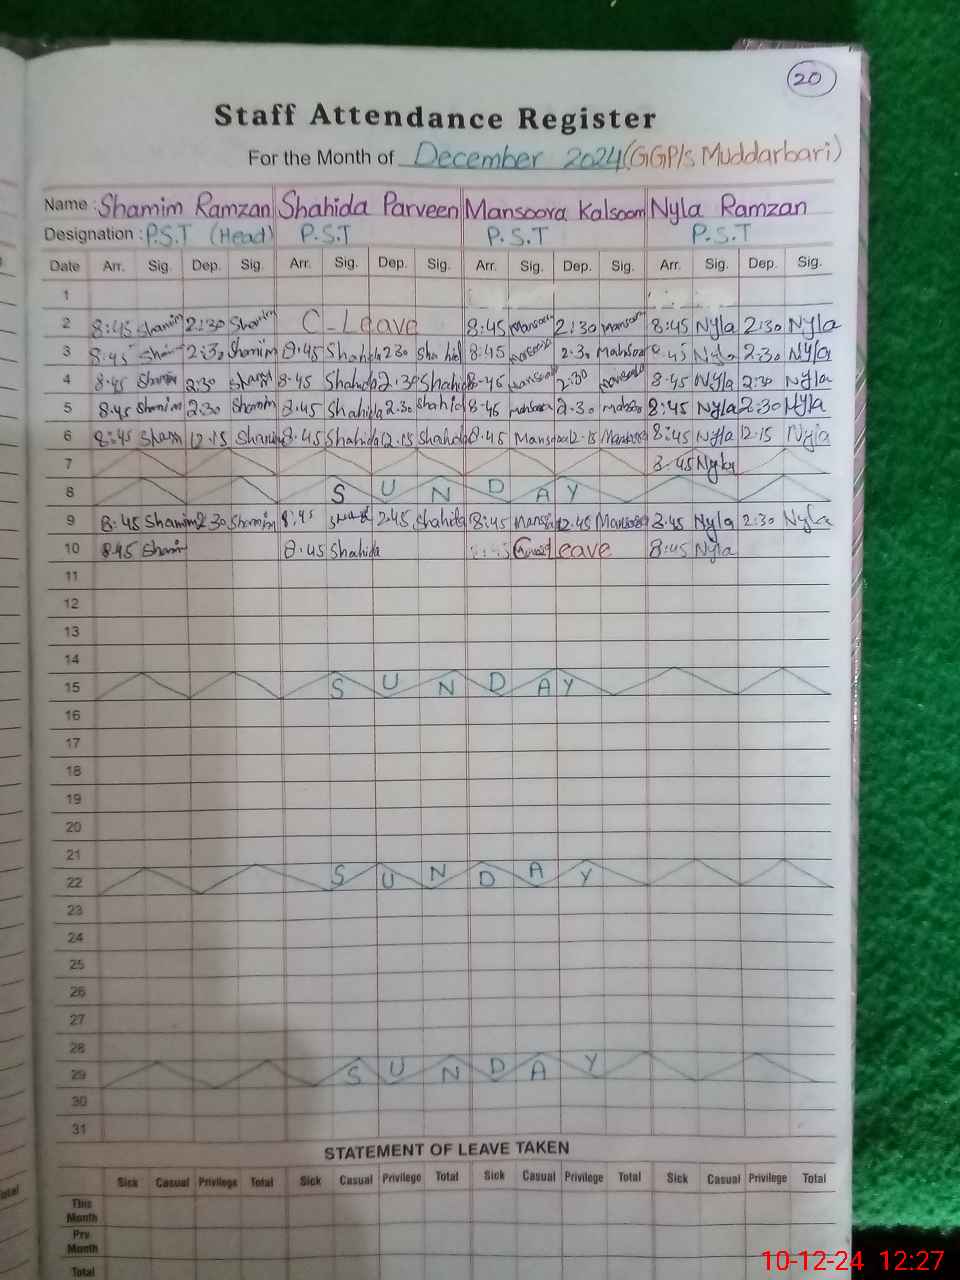 20
Staff Attendance Register
For the Month of December 2024 (GGP/s Muddarbari)
Name : Shamim Ramzan Shahida Parveen Mansoora Kalsoom Nyla Ramzan
Designation : P.S.T (Head) P.S.T P.S.T P.S.T
Date Arr. Sig. Dep. Sig. Arr. Sig. Dep. Sig. Arr. Sig. Dep. Sig. Arr. Sig. Dep. Sig.
1
2 8:45 Shamim 2:30 Shamim C-Leave 8:45 Mansoora 2:30 Mansoora 8:45 Nyla 2:30 Nyla
3 8:45 Shamim 2:30 Shamim 8.45 Shahida 2.30 Shahid 8:45 2.30 Mahsoo 8:45 Nyla 2:30 Nyla
4 8:45 Shamim 2:30 8.45 Shahida 2.30 Shahida 8-45 Mansoora 2:30 8:45 Nyla 2:30 Nyla
5 8:45 Shamim 2:30 Shamim 8.45 Shahida 2.30 Shahid 8-45 2.30 8:45 Nyla 2:30 Nyla
6 8:45 Sham 12.15 Shamim 8.45 Shahida 12.15 Shahida 8.45 Mansoora 12.15 Mansoora 8:45 Nyla 12.15 Nyla
7 8.45 Nyla
8 S U N D A Y
9 8:45 Shamim 2:30 Shamim 8:45 2.45 Shahida 8:45 Mansoora 12.45 Mansoora 8.45 Nyla 2:30 Nyla
10 8.45 Shamim 8.45 Shahida Leave 8:45 Nyla
11
12
13
14
15 S U N D A Y
16
17
18
19
20
21
22 S U N D A Y
23
24
25
26
27
28
29 S U N D A Y
30
31
STATEMENT OF LEAVE TAKEN
Sick Casual Privilege Total Sick Casual Privilege Total Sick Casual Privilege Total Sick Casual Privilege Total
This Month
Prv Month
Total
10-12-24 12:27